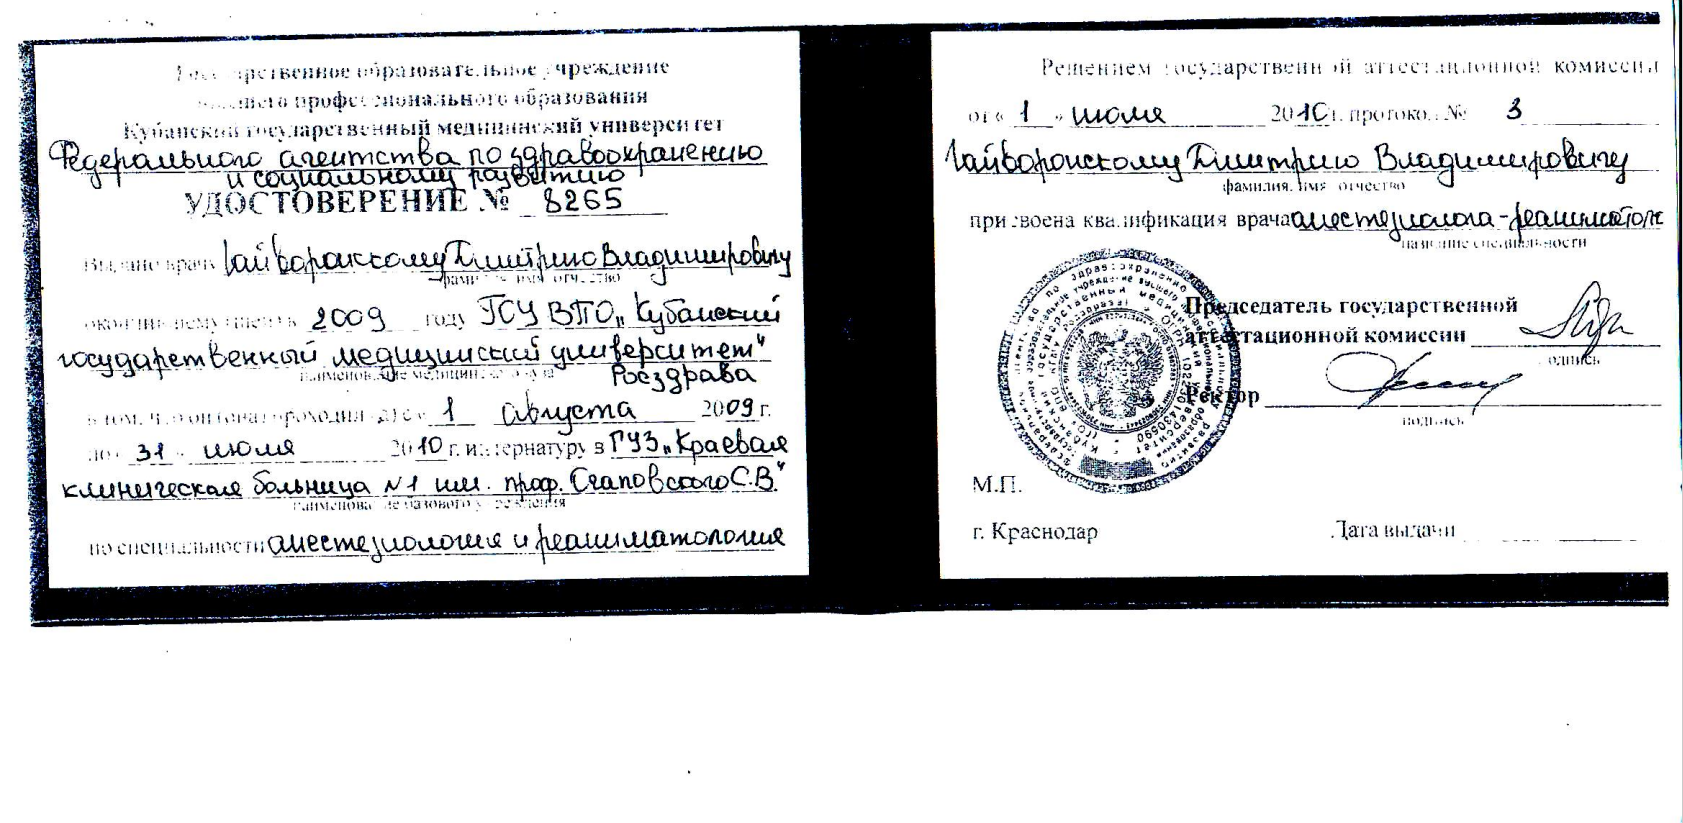 Государственное образовательное учреждение
высшего профессионального образования
Кубанский государственный медицинский университет
Федерального агентства по здравоохранению
и социальному развитию
УДОСТОВЕРЕНИЕ № 8265
Выдано врачу Гайворонскому Дмитрию Владимировичу
фамилия, имя, отчество
окончившему в 2009 году ГОУ ВПО „Кубанский
государственный медицинский университет"
Росздрава
наименование медицинского вуза
в том, что он (она) проходил (а) с « 1 августа 2009 г.
по « 31 » июля 2010 г. интернатуру в ГУЗ „Краевая
клиническая больница №1 им. проф. Очаповского С.В."
наименование базового учреждения
по специальности анестезиология и реаниматология
Решением государственной аттестационной комиссии
от « 1 » июля 2010 г. протокол № 3
Гайворонскому Дмитрию Владимировичу
фамилия, имя, отчество
присвоена квалификация врача анестезиолога-реаниматолога
название специальности
Председатель государственной
аттестационной комиссии
подпись
Ректор
подпись
М.П.
г. Краснодар Дата выдачи